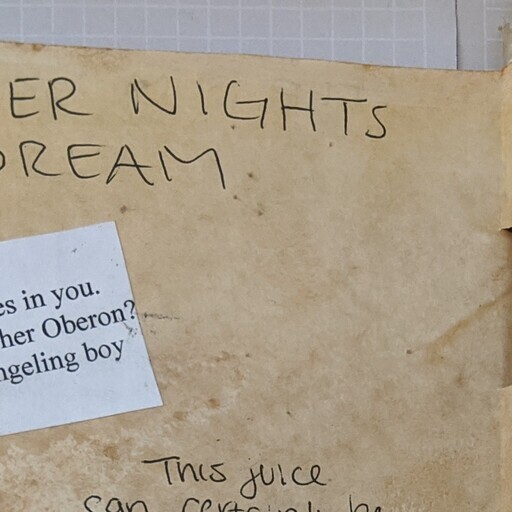 ER NIGHTS
DREAM
es in you.
her Oberon?
ngeling boy
This juice
can certainly be